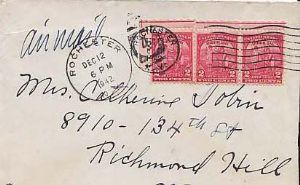 air mail
ROCHESTER
DEC 12
6 PM
1942
ROCHESTER
2 2 2
Mrs. Catherine Tobin
8910-134th St
Richmond Hill